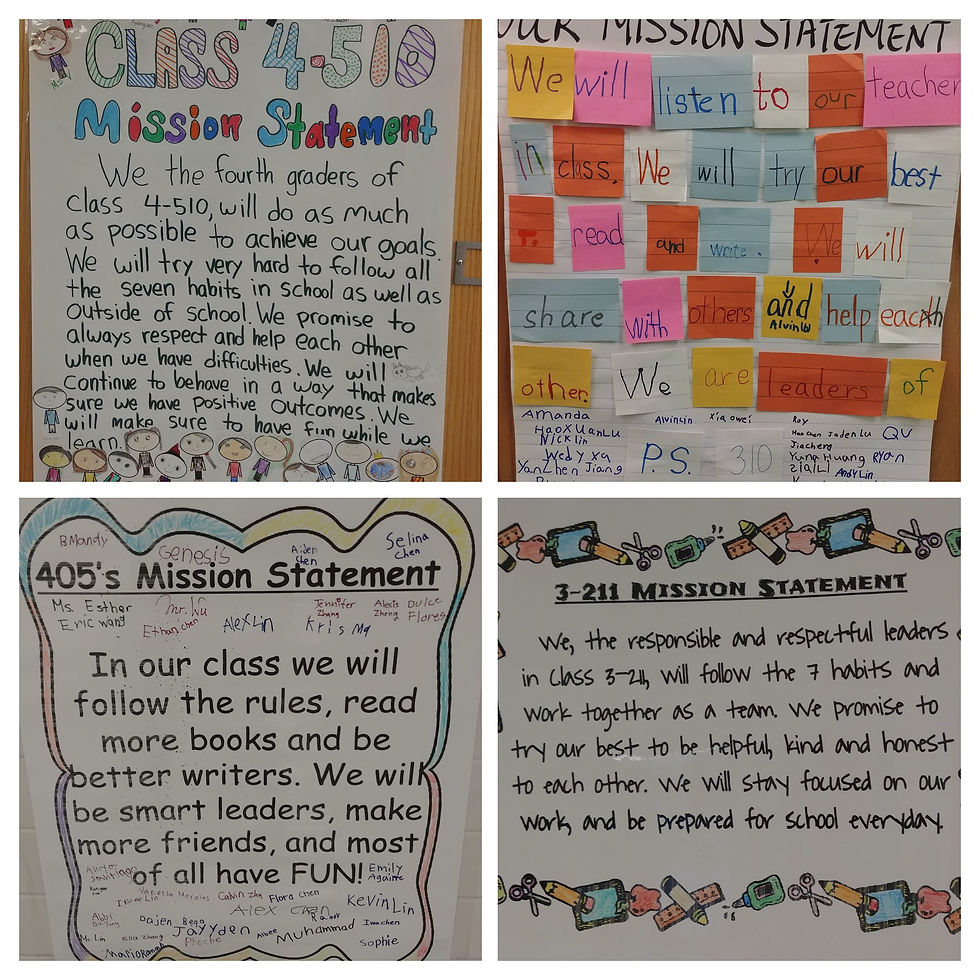 CLASS 4-510
Mission Statement
We the fourth graders of
class 4-510, will do as much
as possible to achieve our goals.
We will try very hard to follow all
the seven habits in school as well as
outside of school. We promise to
always respect and help each other
when we have difficulties. We will
continue to behave in a way that makes
sure we have positive outcomes. We
will make sure to have fun while we
learn.
OUR MISSION STATEMENT
We will listen to our teacher
in class. We will try our best
to read and write. We will
share with others and help each
Alvin
other. We are leaders of
Amanda AlvinLin Xiaowei Roy
HaoXuanLu Haochen JadenLu QU
Nicklin Jiacheng
Wedy Xu Yung Huang Ryan
YanZhen Jiang P.S. 310 AndyLin
BMandy Genesis Aiden Chen Selina Chen
405's Mission Statement
Ms. Esther Mr. Wu Jennifer Zhang Alexis Zheng Dulce Flores
Eric Wang Ethan.chen AlexLin Kris Ma
In our class we will
follow the rules, read
more books and be
better writers. We will
be smart leaders, make
more friends, and most
of all have FUN!
Emily Aguirre
Irene Lin Vanessa Morales Calvin Zha Flora Chen
Alex Chen Kevin Lin
Abby Dajen Begg Ivan chen
Ms. Lin Ella Zhang Jayyden Albee Muhammad
Phoebe Sophie
3-211 MISSION STATEMENT
We, the responsible and respectful leaders
in class 3-211, will follow the 7 habits and
work together as a team. We promise to
try our best to be helpful, kind and honest
to each other. We will stay focused on our
work, and be prepared for school everyday.